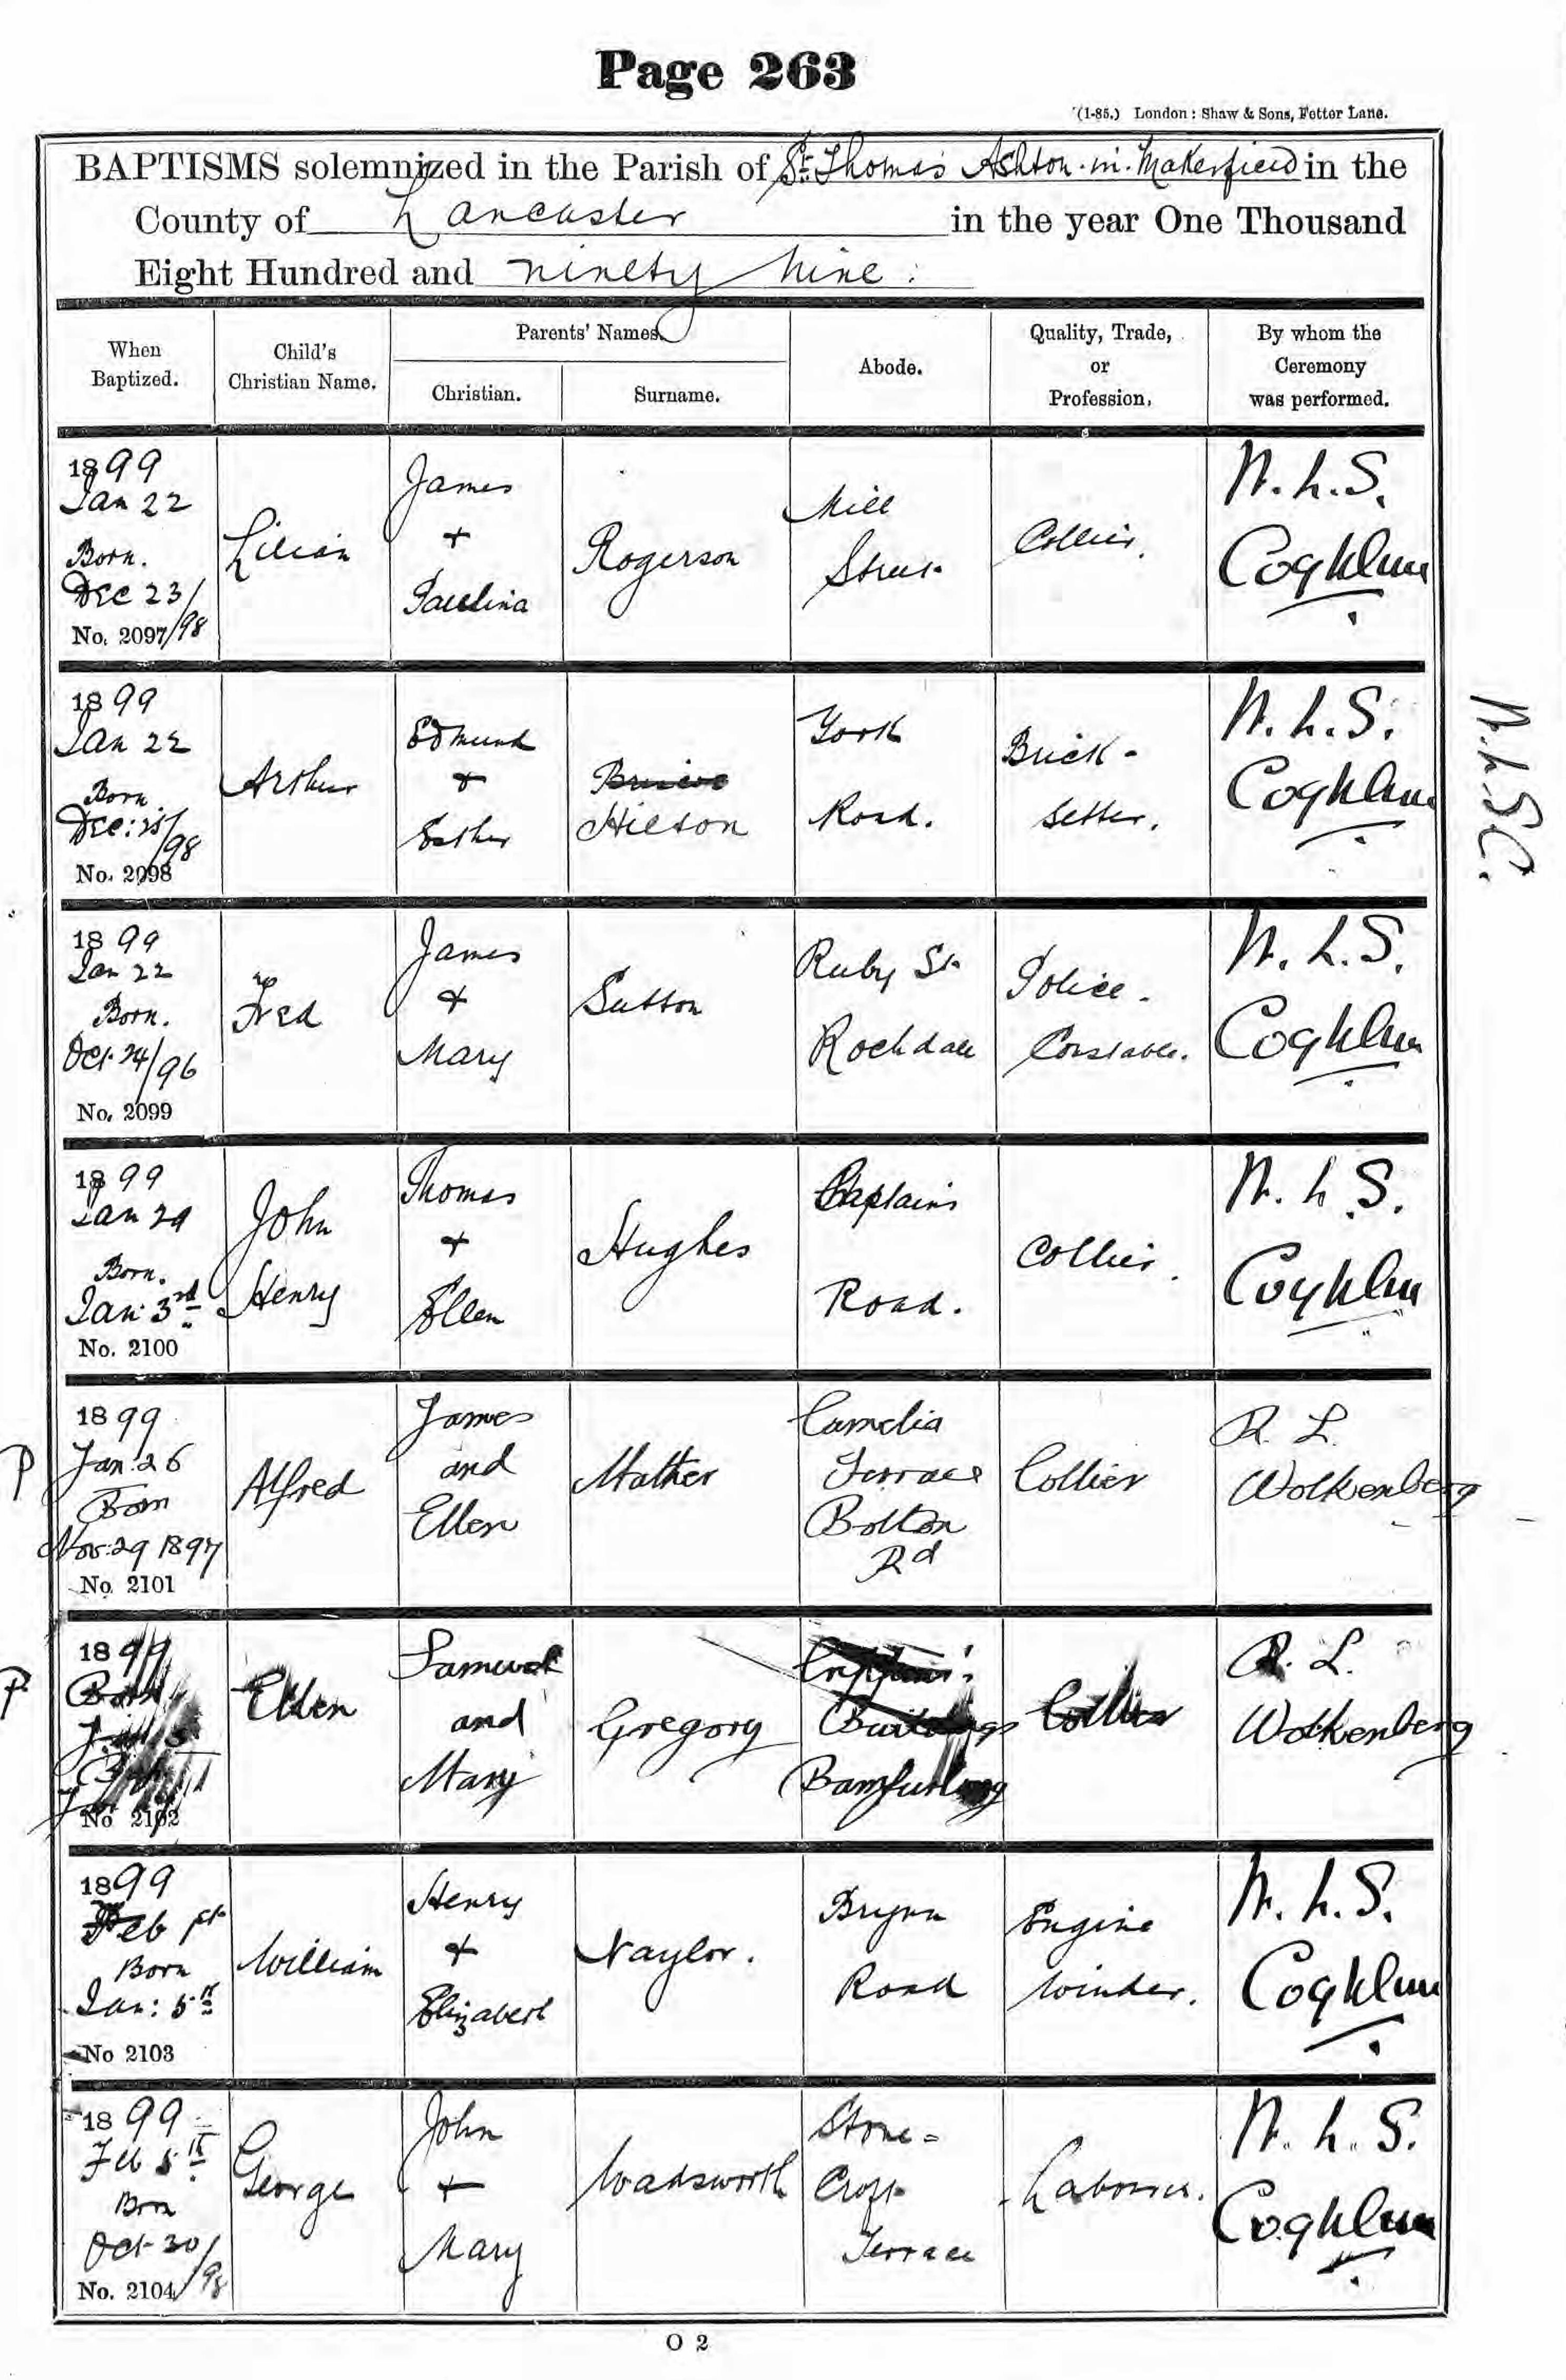 Page 263
(1-85.) London: Shaw & Sons, Fetter Lane.
BAPTISMS solemnized in the Parish of St Thomas Ashton-in-Makerfield in the
County of Lancaster in the year One Thousand
Eight Hundred and ninety nine.
When Baptized.
Child's Christian Name.
Parents' Names.
Christian.
Surname.
Abode.
Quality, Trade, or Profession.
By whom the Ceremony was performed.
1899
Jan 22
Born.
Dec 23/98
No. 2097
Lilian
James
+
Paulina
Rogerson
Mill
Street
Collier.
W.L.S.
Coghlan
1899
Jan 22
Born.
Dec: 25/98
No. 2098
Arthur
Edmund
+
Esther
Hilton
York
Road.
Brick-
setter.
W.L.S.
Coghlan
W.L.S.C.
1899
Jan 22
Born.
Oct 24/96
No. 2099
Fred
James
+
Mary
Sutton
Ruby St
Rochdale
Police-
Constable.
W.L.S.
Coghlan
1899
Jan 29
Born.
Jan: 3rd
No. 2100
John
Henry
Thomas
+
Ellen
Hughes
Captains
Road.
Collier.
W.L.S.
Coghlan
P
1899
Jan: 26
Born
Nov: 29 1897
No. 2101
Alfred
James
and
Ellen
Mather
Camelia
Terrace
Bolton
Rd
Collier
R. L.
Wolkenberg
P
1899
No 2102
Ellen
Samuel
and
Mary
Gregory
Buildings
Bamfurlong
Collier
R. L.
Wolkenberg
1899
Feb 1st
Born
Jan: 5th
No 2103
William
Henry
+
Elizabeth
Naylor.
Brynn
Road
Engine
Winder.
W.L.S.
Coghlan
1899
Feb 5th
Born
Oct 30/98
No. 2104
George
John
+
Mary
Wadsworth
Stone=
Croft
Terrace
Labourer.
W.L.S.
Coghlan
O 2